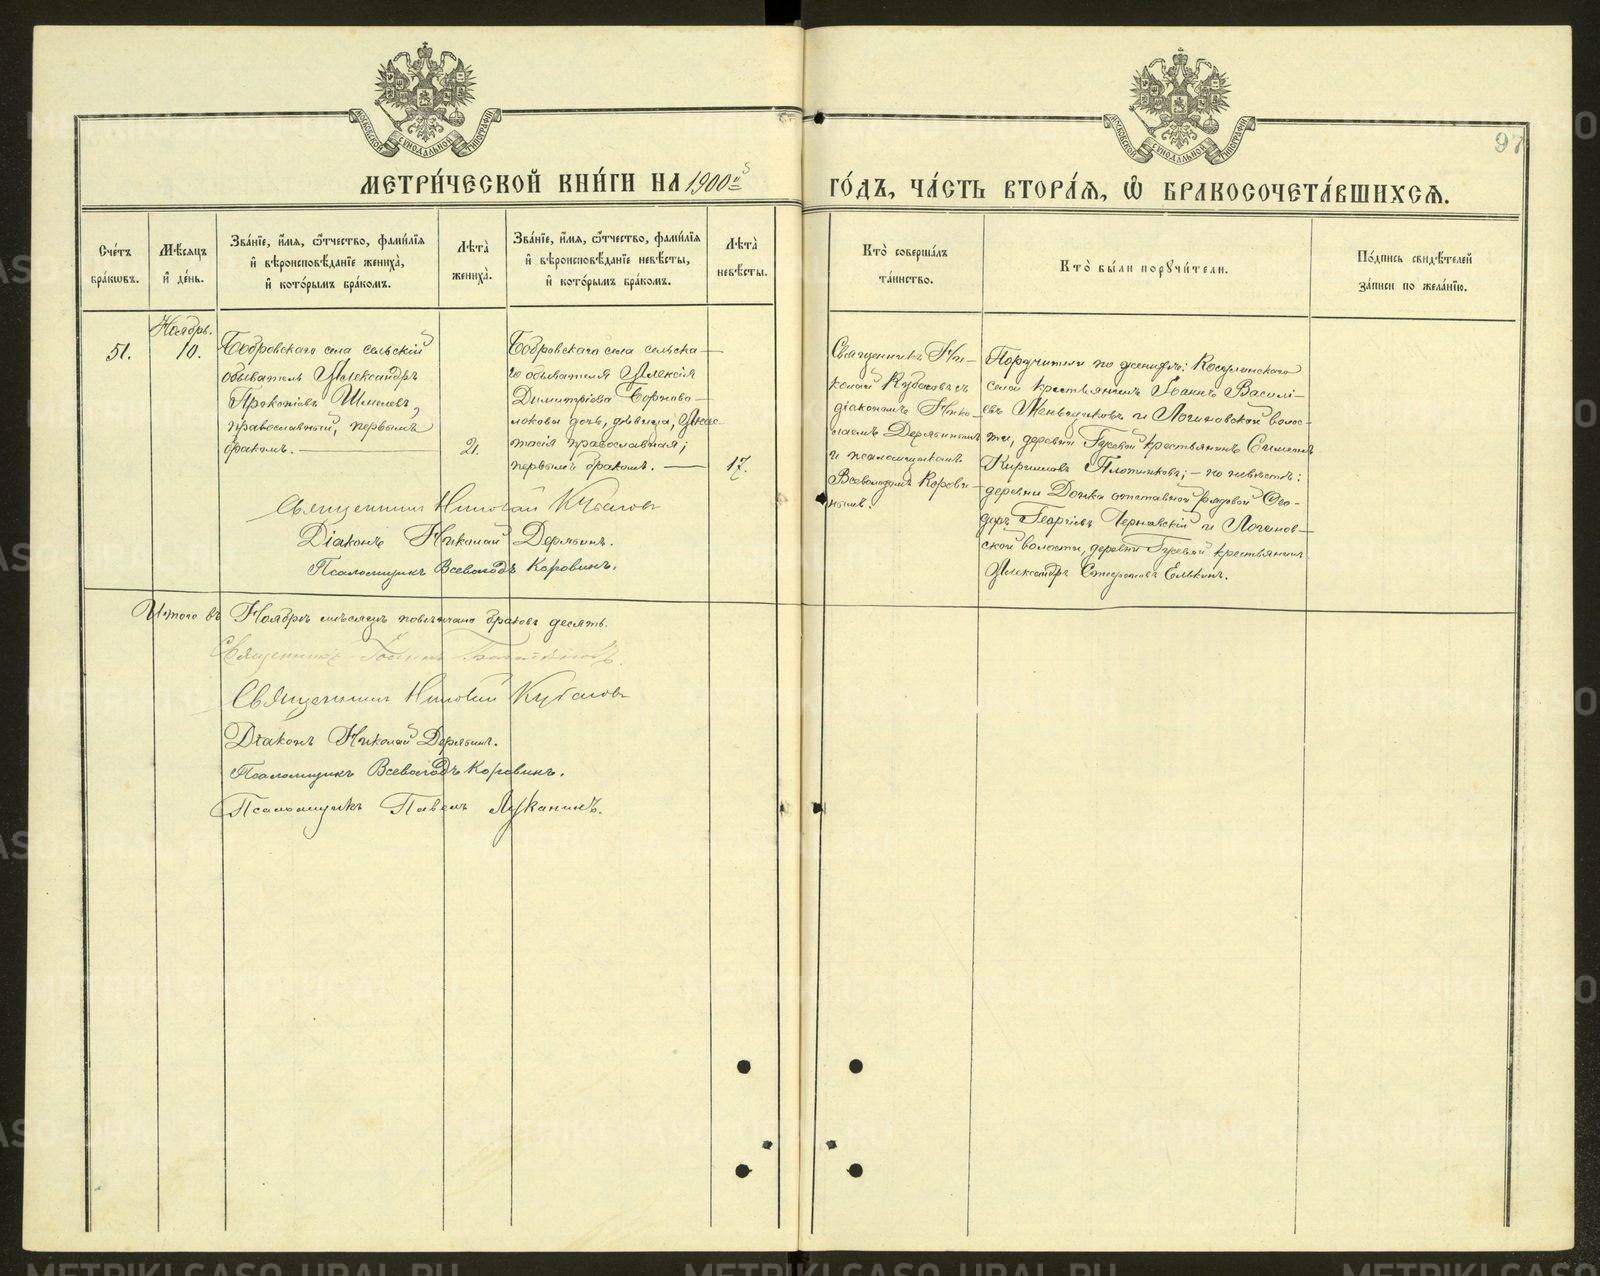 МОСКОВСКОЙ СѴНОДАЛЬНОЙ ТИПОГРАФІИ
МОСКОВСКОЙ СѴНОДАЛЬНОЙ ТИПОГРАФІИ
97
МЕТРИ́ЧЕСКОЙ КНИ́ГИ НА 1900й
ГО́ДЪ, ЧА́СТЬ ВТОРА́Я, Ѿ БРАКОСОЧЕТА́ВШИХСЯ.
Сче́тъ бра́кѡвъ.
Мѣ́сяцъ и҆ де́нь.
Зва́нїе, и҆́мя, ѻ҆́тчество, фами́лїя и҆ вѣроисповѣ́данїе жениха̀, и҆ кото́рымъ бра́комъ.
Лѣ́та жениха̀.
Зва́нїе, и҆́мя, ѻ҆́тчество, фами́лїя и҆ вѣроисповѣ́данїе невѣ́сты, и҆ кото́рымъ бра́комъ.
Лѣ́та невѣ́сты.
Кто̀ соверша́лъ та́инство.
Кто̀ бы́ли порꙋчи́тели.
По́дпись свидѣ́телей за́писи по жела́нїю.
51.
Ноябрь.
10.
Бобровскаго села сельскій
обыватель Александръ
Прокопіевъ
православный, первымъ
бракомъ.
21.
Бобровскаго села сельска-
го обывателя Алексія
Димитріева Борново-
локова дочь, дѣвица, Анас
тасія православная;
первымъ бракомъ.
17.
Священникъ Ни-
колай Кубасовъ съ
діакономъ Нико-
лаемъ Дерябинымъ
и псаломщикомъ
Всеволодомъ Корови-
нымъ.
Поручители по женихѣ: Косулинскаго
села крестьянинъ Іоаннъ Василі-
евъ и Логиновской волос-
ти, деревни Гусевой крестьянинъ Симеонъ
Кирилловъ Плотниковъ; - по невѣстѣ:
деревни отставной рядовой Ѳео-
доръ Георгіевъ Чернавскій и Логинов-
ской волости, деревни Гусевой крестьянинъ
Александръ Елькинъ.
Священникъ Николай Кубасовъ
Діаконъ Николай Дерябинъ.
Псаломщикъ Всеволодъ Коровинъ.
Итого въ Ноябрѣ мѣсяцѣ повѣнчано браковъ десять.
Священникъ
Священникъ Николай Кубасовъ
Діаконъ Николай Дерябинъ.
Псаломщикъ Всеволодъ Коровинъ.
Псаломщикъ Павелъ Луканинъ.
METRIKI.GASO-URAL.RU